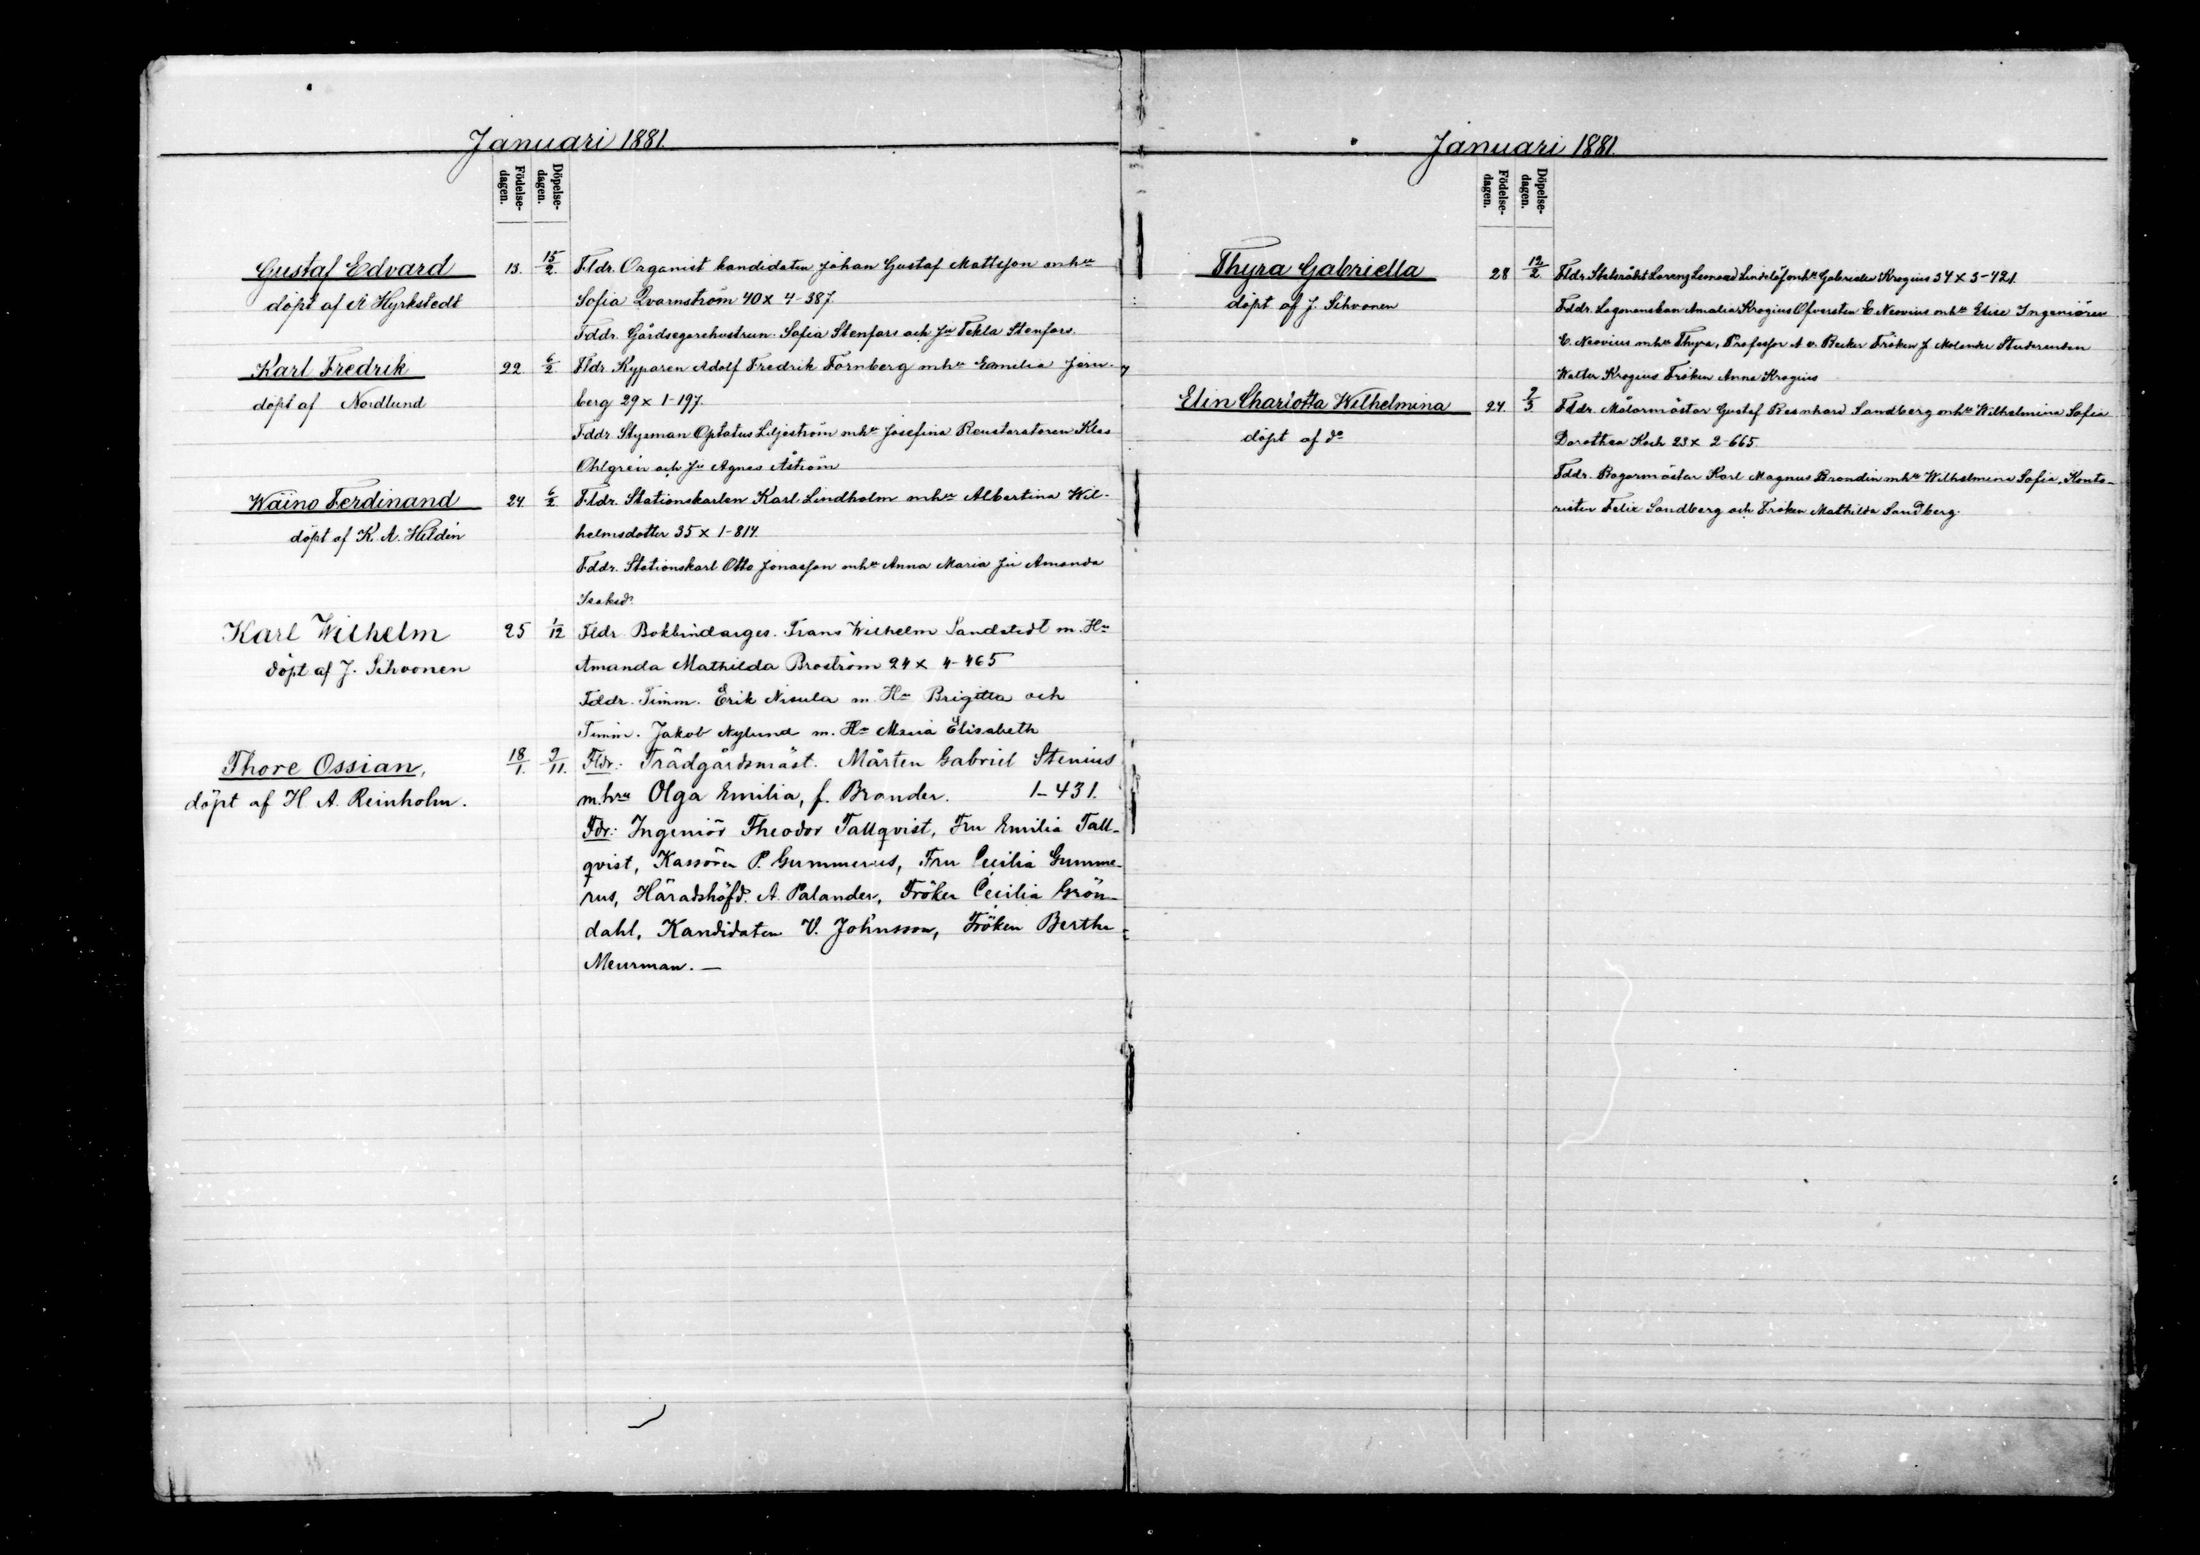 Januari 1881.
Födelse-
dagen.
Döpelse-
dagen.
Gustaf Edvard
döpt af A Hyrkstedt
13.
15/2
Fldr. Organist kandidaten Johan Gustaf Mattsson mhu
Sofia Qvarnström 40 x 4-387.
Fddr. Gårdsegarehustrun Sofia Stenfors och Ju Tekla Stenfors.
Karl Fredrik
döpt af Nordlund
22.
6/2
Fldr. Kyparen Adolf Fredrik Fornberg mhu Emilia Jern-
berg 29 x 1-197.
Fddr Styrman Optatus Liljeström mhu Josefina Restoratoren Klas
Ohlgren och Ju Agnes Åström
Wäino Ferdinand
döpt af K. A. Hildén
24.
6/2
Fldr. Stationskarlen Karl Lindholm mhu Albertina Wil-
helmsdotter 35 x 1-814.
Fddr. Stationskarl Otto Jonasson mhu Anna Maria Ju Amanda
Isaksdr
Karl Wilhelm
döpt af J. Sihvonen
25
1/12
Fldr. Bokbindarges. Frans Wilhelm Sandstedt m. Hu
Amanda Mathilda Broström 24 x 4-465
Fddr. Timm. Erik Nisula m. Hu Brigitta och
Timm. Jakob Nylund m. Hu Maria Elisabeth
Thore Ossian,
döpt af H A. Reinholm.
18/1.
9/11.
Fldr: Trädgårdsmäst. Mårten Gabriel Stenius
m.hru Olga Emilia, f. Brander. 1-431.
Fdr: Ingeniör Theodor Tallqvist, Fru Emilia Tall-
qvist, Kassören P. Gummerus, Fru Cecilia Gumme-
rus, Häradshöfd. A. Palander, Fröken Cecilia Grön-
dahl, Kandidaten V. Johnsson, Fröken Bertha
Meurman. —
Januari 1881.
Födelse-
dagen.
Döpelse-
dagen.
Thyra Gabriella
döpt af J. Sihvonen
28
12/2
Fldr. Statsrådet Lorenz Leonard Lindelöf mhu Gabriella Krogius 34 x 3-421.
Fddr. Lagmanskan Amalia Krogius Öfversten E Neovius mhu Elise Ingeniören
E. Neovius mhu Thyra, Professor A v. Becker Fröken J Molander Studeranden
Walter Krogius Fröken Anna Krogius
Elin Charlotta Wilhelmina
döpt af do
24.
7/3
Fldr. Målarmästar Gustaf Reinhard Sandberg mhu Wilhelmina Sofia
Dorothea Koch 23 x 2-665.
Fddr. Bagarmästar Karl Magnus Brondin mhu Wilhelmina Sofia, Konto-
risten Felix Sandberg och Fröken Mathilda Sandberg.